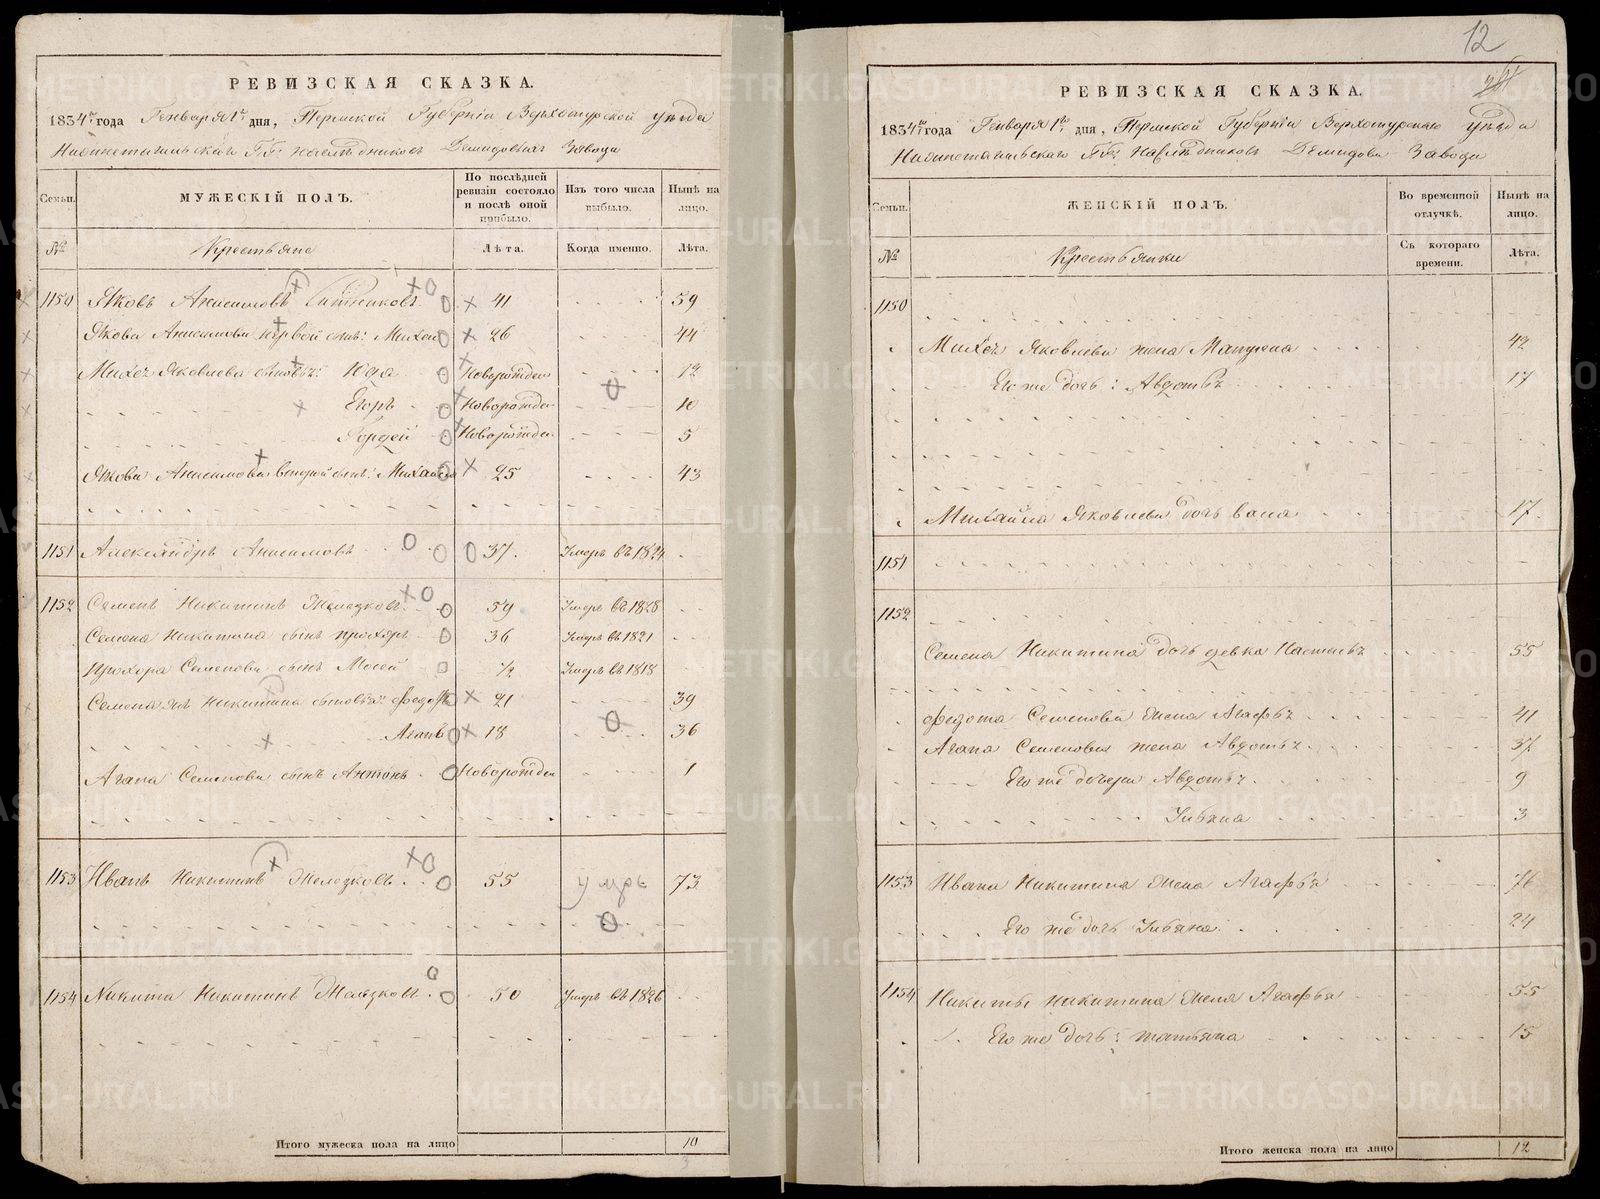 РЕВИЗСКАЯ СКАЗКА.
1834го года Генваря 1го дня, Пермской Губерніи Верхотурской уѣзда
Нижнетагильскаго Г.Г. наслѣдниковъ Демидовыхъ Завода
Семьи.
МУЖЕСКІЙ ПОЛЪ.
По послѣдней ревизіи состояло и послѣ оной прибыло.
Изъ того числа выбыло.
Нынѣ на лицо.
№
Крестьяне
Лѣта.
Когда именно.
Лѣта.
1150 Яковъ Анисимовъ 41 59
Якова Анисимова первой сынъ: Михей 26 44
Михея Яковлева сыновья: Новорожден 12
Егоръ Новорожден 10
Гордей Новорожден 5
Якова Анисимова второй сынъ: Михайла 25 43
1151 Александръ Анисимовъ 37. Умеръ въ 1824
1152 Семенъ Никитинъ Желѣзковъ 59 Умеръ въ 1828
Семена Никитина сынъ Прохоръ 36 Умеръ въ 1821
Прохора Семенова сынъ Мосей 1/2 Умеръ въ 1818
Семена Никитина сыновья: Федотъ 21 39
Агапъ 18 36
Агапа Семенова сынъ Антонъ Новорожден 1
1153 Иванъ Никитинъ Желѣзковъ 55 умръ 73
1154 Никита Никитинъ Желѣзковъ 50 Умеръ въ 1826
Итого мужеска пола на лицо 10
12
РЕВИЗСКАЯ СКАЗКА.
1834го года Генваря 1го дня, Пермской Губерніи Верхотурскаго уѣзда
Нижнетагильскаго Г.Г. наслѣдниковъ Демидовы Завода
Семьи.
ЖЕНСКІЙ ПОЛЪ.
Во временной отлучкѣ.
Нынѣ на лицо.
№
Крестьянки
Съ котораго времени.
Лѣта.
1150
Михея Яковлева жена 42
Его же дочь: Авдотья 17
Михайла Яковлева дочь 17.
1151
1152
Семена Никитина дочь девка Настасья 55
Федота Семенова жена Агафья 41
Агапа Семенова жена Авдотья 37
Его же дочери Авдотья 9
Ульяна 3
1153 Ивана Никитина жена Агафья 76
Его же дочь Ульяна 24
1154 Никиты Никитина жена Агафья 55
Его же дочь: Татьяна 15
Итого женска пола на лицо 12
METRIKI.GASO-URAL.RU